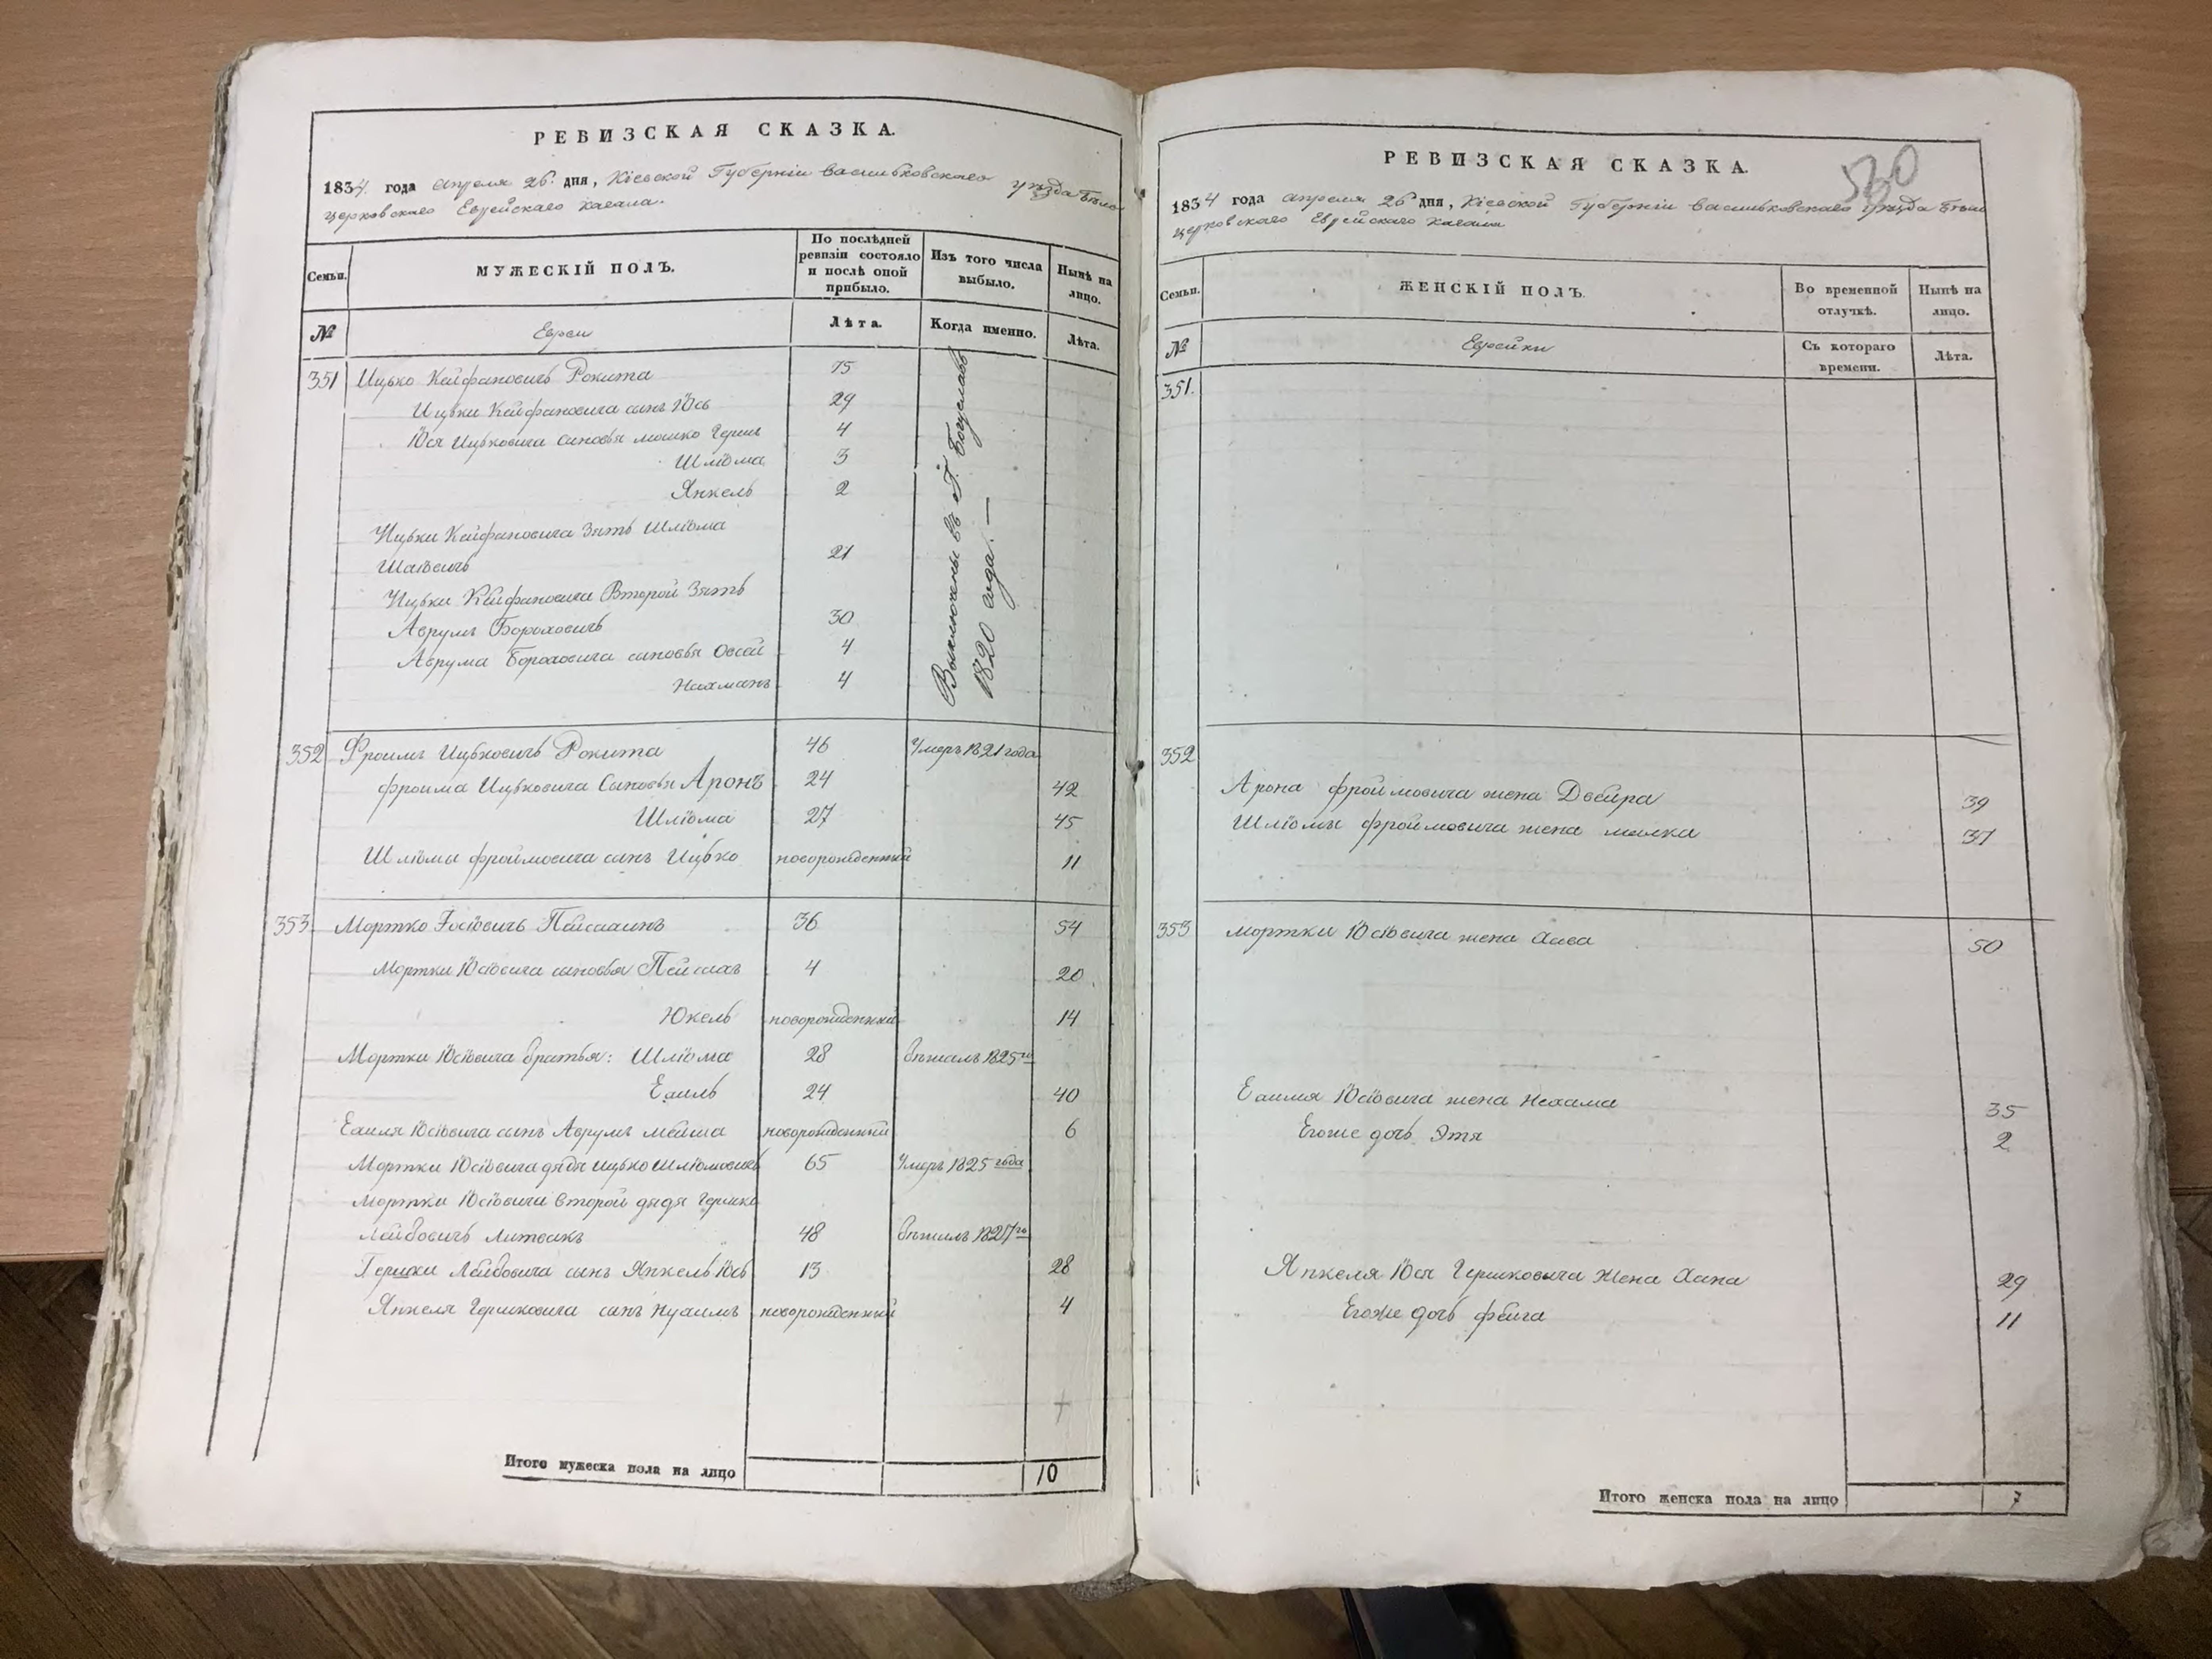 РЕВИЗСКАЯ СКАЗКА.
1834 года апреля 26 дня, Кіевской Губерніи Васильковскаго уѣзда Бѣло
церковскаго Еврейскаго кагала.
Семьи.
МУЖЕСКІЙ ПОЛЪ.
По послѣдней ревизіи состояло и послѣ оной прибыло.
Изъ того числа выбыло.
Нынѣ на лицо.
№
Евреи
Лѣта.
Когда именно.
Лѣта.
351 Ицько Кейфановичъ Рокита 75
Ицьки Кейфановича сынъ Юсь 29
Юся Ицьковича сыновья мошко Гершъ 4
Шліома 3
Янкель 2
Ицьки Кейфановича Зять Шліома
21
Ицьки Кейфановича Второй Зять
Аврумъ Бороховичъ 30
Аврума Бороховича сыновья Овсей 4
Нахманъ 4
Выключены въ Г. Богуславъ
1820 года. —
352 Фроимъ Ицьковичъ Рокита 46 Умеръ 1821 года
фроима Ицьковича Сыновья Аронъ 24 42
Шліома 27 45
Шліомы фроймовича сынъ Ицько новорожденный 11
353 Мортко 36 54
Мортки Юсіовича сыновья Пейсахъ 4 20
Юкель новорожденный 14
Мортки Юсіовича братья: Шліома 28 бѣжалъ 1825го
24 40
Юсіовича сынъ Аврумъ новорожденный 6
Мортки Юсіовича дядя Ицько Шліомовичъ 65 Умеръ 1825 года
Мортки Юсіовича второй дядя Гершко
Лейбовичъ Литвакъ 48 бѣжалъ 1827го
Гершки Лейбовича сынъ Янкель Юсь 13 28
Янкеля Гершковича сынъ новорожденный 4
Итого мужеска пола на лицо 10
РЕВИЗСКАЯ СКАЗКА.
1834 года апреля 26 дня, Кіевской Губерніи Васильковскаго уѣзда Бѣло
церковскаго Еврейскаго кагала
Семьи.
ЖЕНСКІЙ ПОЛЪ.
Во временной отлучкѣ.
Нынѣ на лицо.
№
Еврейки
Съ котораго времени.
Лѣта.
351.
352
Арона фроймовича жена Двейра 39
Шліомы фроймовича жена малка 37
353 мортки Юсіовича жена Хава 50
Юсіовича жена Нехама 35
Егоже дочь Этя 2
Янкеля Юся Гершковича жена Хана 29
Егоже дочь фейга 11
Итого женска пола на лицо 7